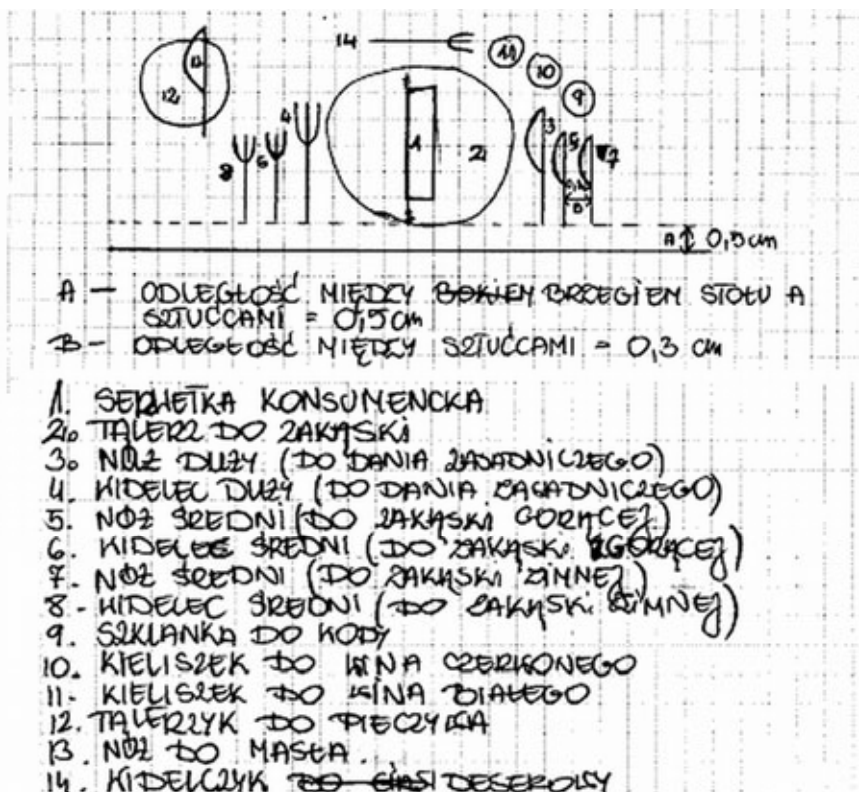 14
11
10
9
13
12
4
3
5
8
6
1
2
7
0,3
B
A 0,5 cm
A - ODLEGŁOŚĆ MIĘDZY BRZEGIEM STOŁU A
SZTUĆCAMI = 0,5 cm
B - ODLEGŁOŚĆ MIĘDZY SZTUĆCAMI = 0,3 cm
1. SERWETKA KONSUMENCKA
2. TALERZ DO ZAKĄSKI
3. NÓŻ DUŻY (DO DANIA ZASADNICZEGO)
4. WIDELEC DUŻY (DO DANIA ZASADNICZEGO)
5. NÓŻ ŚREDNI (DO ZAKĄSKI GORĄCEJ)
6. WIDELEC ŚREDNI (DO ZAKĄSKI GORĄCEJ)
7. NÓŻ ŚREDNI (DO ZAKĄSKI ZIMNEJ)
8. WIDELEC ŚREDNI (DO ZAKĄSKI ZIMNEJ)
9. SZKLANKA DO WODY
10. KIELISZEK DO WINA CZERWONEGO
11. KIELISZEK DO WINA BIAŁEGO
12. TALERZYK DO PIECZYWA
13. NÓŻ DO MASŁA
14. WIDELCZYK DESEROWY